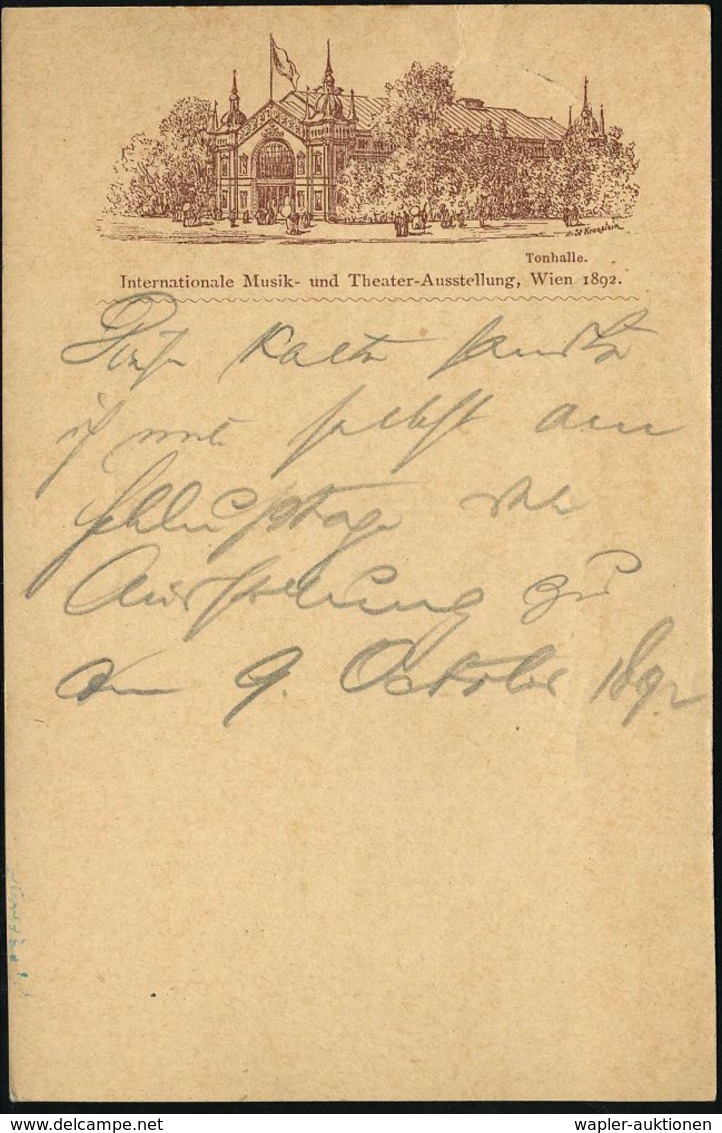 Tonhalle.
Internationale Musik- und Theater-Ausstellung, Wien 1892.
Diese Karte sandte
ich mir selbst am
Schlußtage der
Ausstellung zu
am 9. October 1892
wapler-auktionen